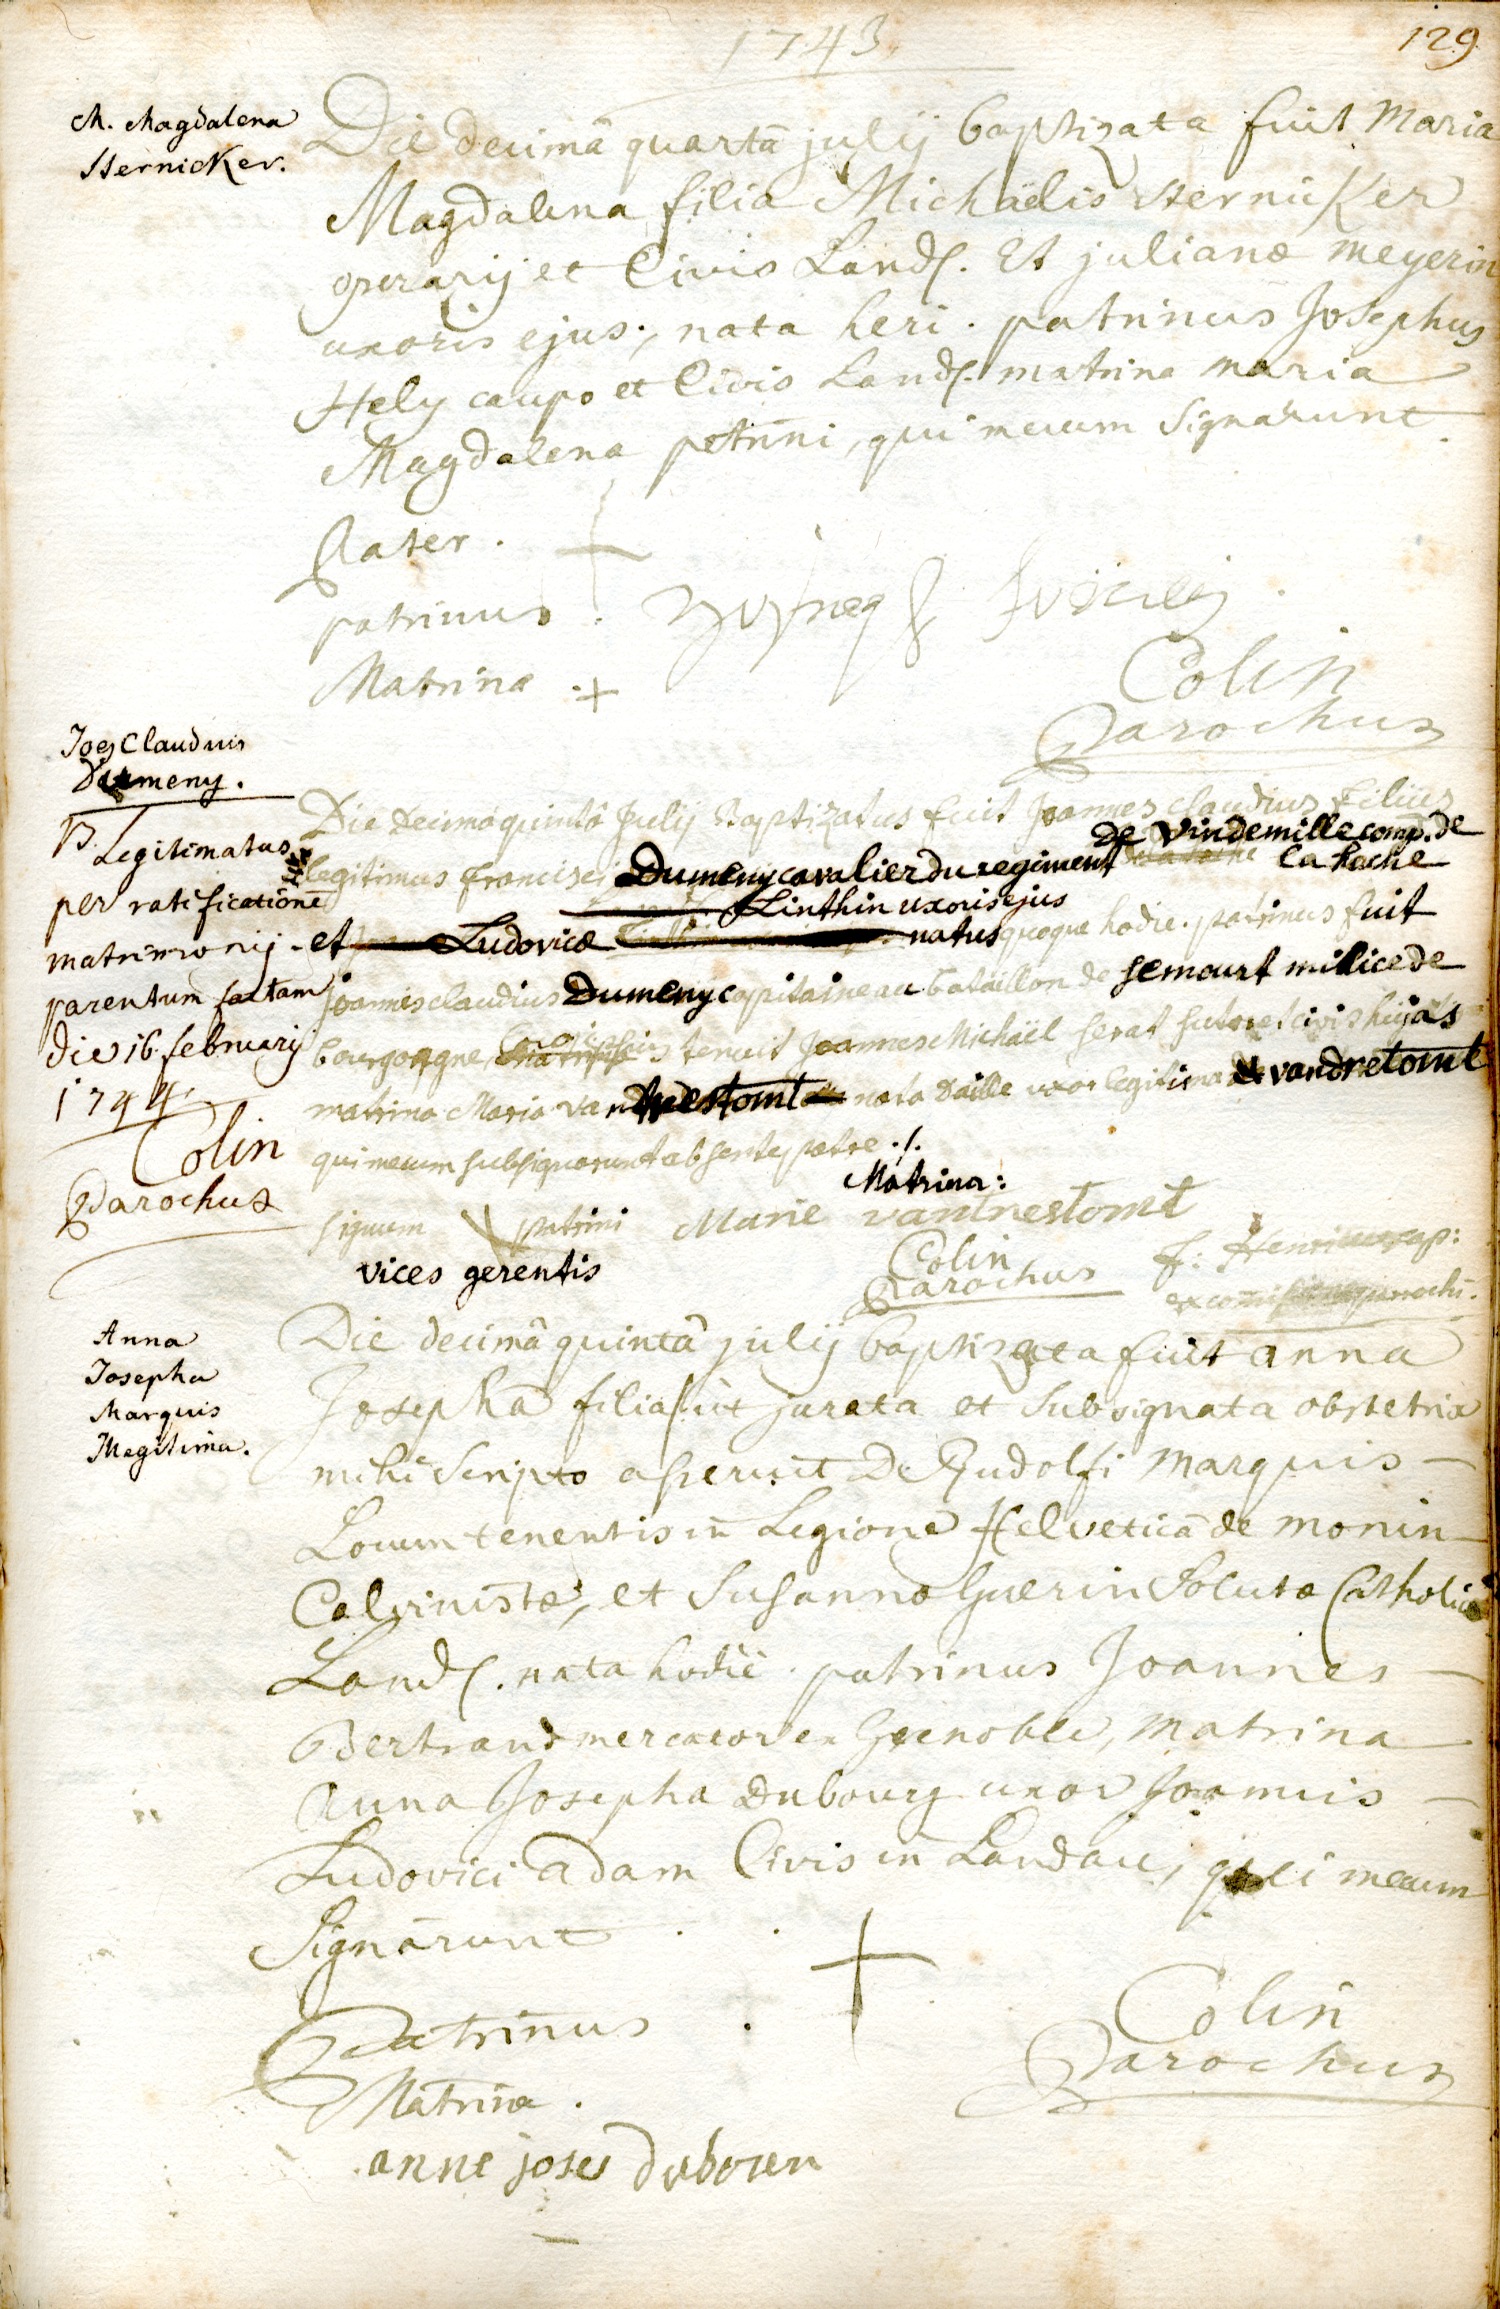 1743.
129
M. Magdalena
Sternicker.
Die decimâ quartâ julij baptizata fuit Maria
Magdalena filia Michäelis Sternicker
operarij et Civis Land. Et julianæ meyerin
uxoris ejus, nata heri. patrinus Josephus
Hely caupo et Civis Land. matrina maria
Magdalena petrini, qui mecum signarunt.
Pater. +
patrinus.
Matrina +
Colin
Parochus
Joes Claudius
Dumeny.
Legitimatus
per ratificationē
matrimonij
parentum factam
die 16 februarij
1744
Colin
Parochus
Die decimâ quintâ Julij Baptizatus fuit Joannes claudius filius
de Vindemille comp. de
legitimus francisci Dumeny cavalier du regiment la Roche
Linthin uxoris ejus
et Ludovicæ natus quoque hodie. patrinus fuit
joannes claudius Dumeny capitaine au bataillon de semeurt milice de
bourgongne, tenuit Joannes Michäel serat sutor et civis hujas
matrina Maria vandrestomt nata Daille uxor legitima de vandretomt
qui mecum subsignarunt absente patre ./.
Matrina:
signum patrini Marie vandrestomt
vices gerentis
Colin
Parochus
Anna
Josepha
Marquis
Illegitima.
Die decimâ quintâ julij baptizata fuit anna
Josepha filia sut jurata et subsignata obstetrix
mihi scripto asseruit De Rudolfi Marquis
Locumtenentis in Legione Helveticâ de monin
Calvinistæ, et Susannæ Guerin Solutæ Catholicæ
Land. nata hodie. patrinus Joannes
Bertrand mercator en Grenoble, Matrina
Anna Josepha Dubourg uxor Joannis
Ludovici adam Civis in Landau, qui mecum
Signârunt
+
Patrinus
Matrina.
anne joses duboren
Colin
Parochus